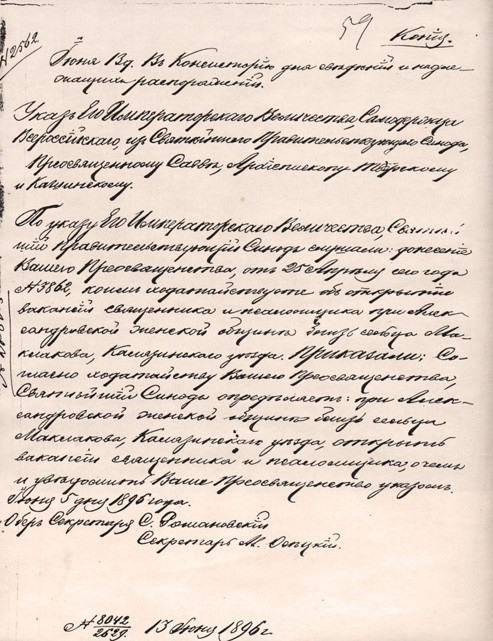 59 Копія.
№ 2562
Іюня 13 д. Въ Консисторію для свѣдѣнія и надле-
жащихъ распоряженій.
Указъ Его Императорскаго Величества, Самодержца
Всероссійскаго, изъ Святѣйшаго Правительствующаго Синода,
Преосвященному Саввѣ, Архіепископу Тверскому
и Кашинскому.
По указу Его Императорскаго Величества, Святѣй
шій Правительствующій Синодъ слушали: донесеніе
Вашего Преосвященства, отъ 25 Апрѣля сего года
№ 3862, коимъ ходатайствуете объ открытіи
вакансій священника и псаломщика при Алек-
сандровской женской общинѣ близь сельца Ма-
клакова, Калязинскаго уѣзда. Приказали: Со-
гласно ходатайству Вашего Преосвященства,
Святѣйшій Синодъ опредѣляетъ: при Алек-
сандровской женской общинѣ близь сельца
Маклакова, Калязинскаго уѣзда, открыть
вакансіи священника и псаломщика, о чемъ
и увѣдомить Ваше Преосвященство указомъ.
Іюня 5 дня 1896 года.
Оберъ Секретарь С. Романовскій
Секретарь М.
№ 8042/2629 13 Іюня 1896 г.